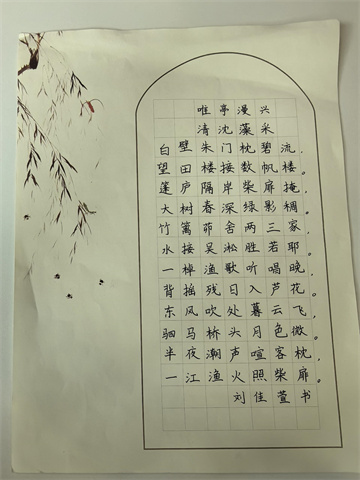 唯亭漫兴
清沈藻采
白壁朱门枕碧流,
望田楼接数帆楼。
蓬庐隔岸柴扉掩,
大树春深绿影稠。
竹篱茆舍两三家,
水接吴淞胜若耶。
一棹渔歌听唱晚,
背摇残日入芦花。
东风吹处暮云飞,
驷马桥头月色微。
半夜潮声喧客枕,
一江渔火照柴扉。
刘佳萱书